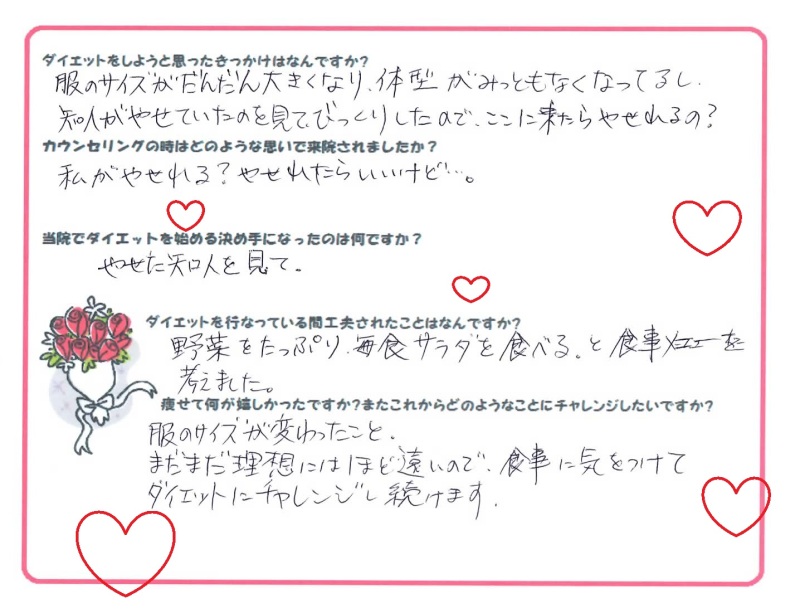 ダイエットをしようと思ったきっかけはなんですか?
服のサイズがだんだん大きくなり、体型がみっともなくなってるし、
知人がやせていたのを見て、びっくりしたので、ここに来たらやせれるの?
カウンセリングの時はどのような思いで来院されましたか?
私がやせれる?やせれたらいいけど…。
当院でダイエットを始める決め手になったのは何ですか?
やせた知人を見て。
ダイエットを行なっている間工夫されたことはなんですか?
野菜をたっぷり、毎食サラダを食べる。と食事メニューを
考えました。
痩せて何が嬉しかったですか?またこれからどのようなことにチャレンジしたいですか?
服のサイズが変わったこと、
まだまだ理想にはほど遠いので、食事に気をつけて
ダイエットにチャレンジし続けます。